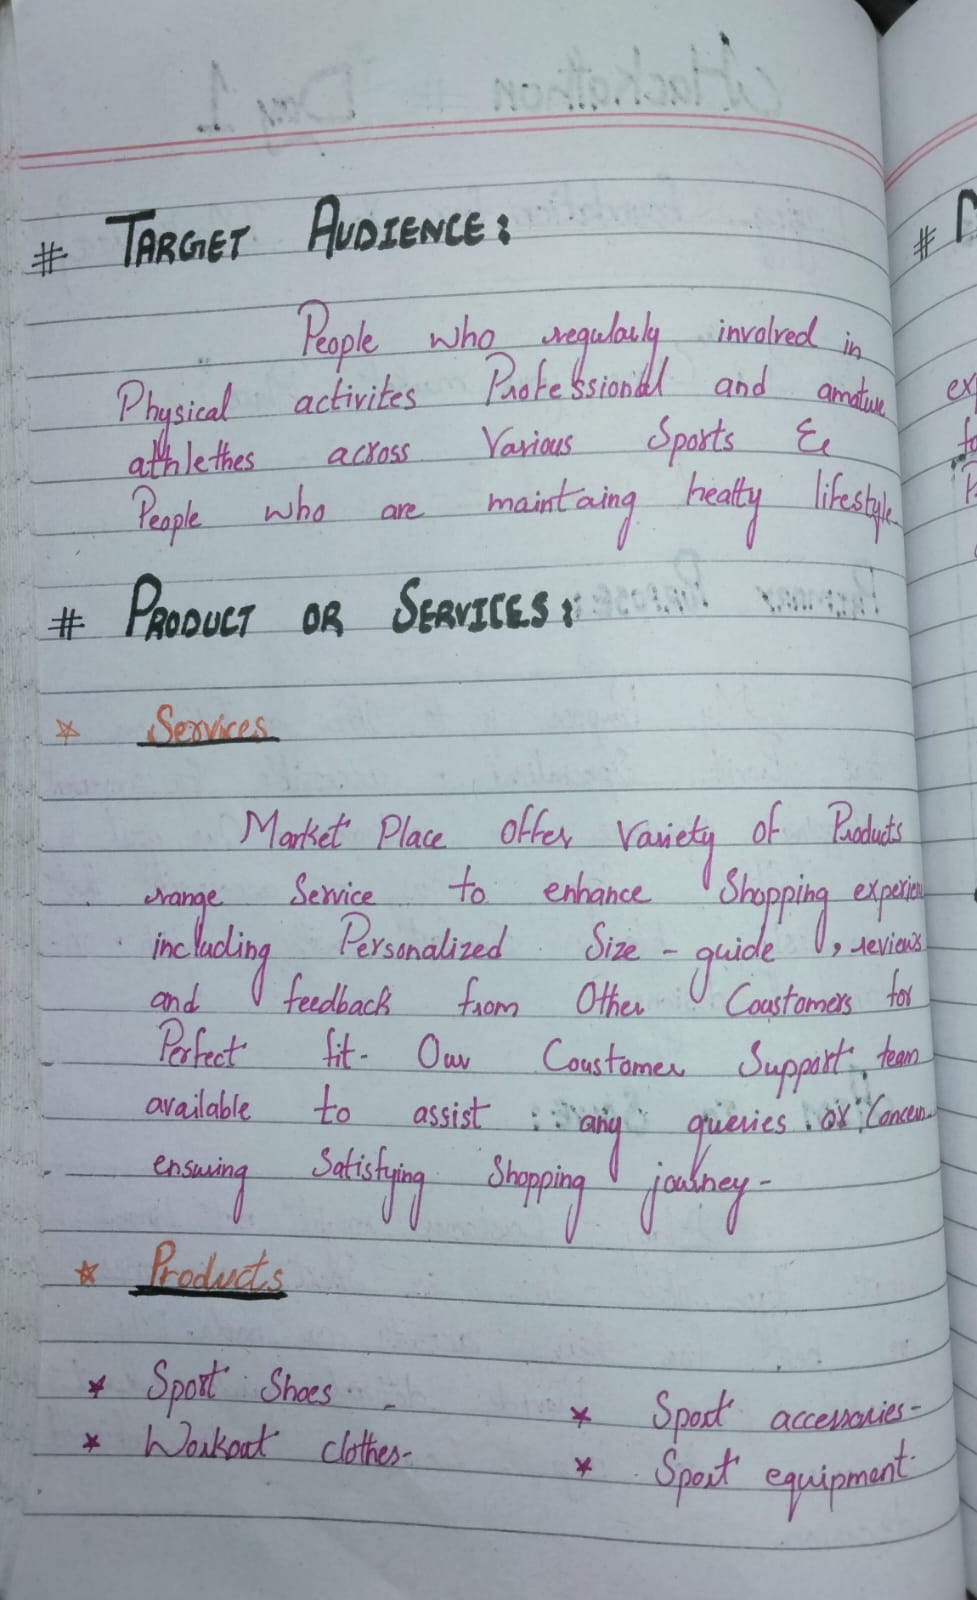 # TARGET AUDIENCE:
People who regularly involved in
Physical activites Professional and amature
athlethes across Various Sports &
People who are maintaing healty lifestyle.
# PRODUCT OR SERVICES:
Services
Market Place offer Variety of Products
range Service to enhance Shopping experien
including Personalized Size - guide , reviews
and feedback from Other Coustomers for
Perfect fit- Our Coustomer Support team
available to assist any queries or Concern
ensuring Satisfying Shopping journey-
Products
* Sport Shoes
* Sport accessories-
* Workout clothes-
* Sport equipment-